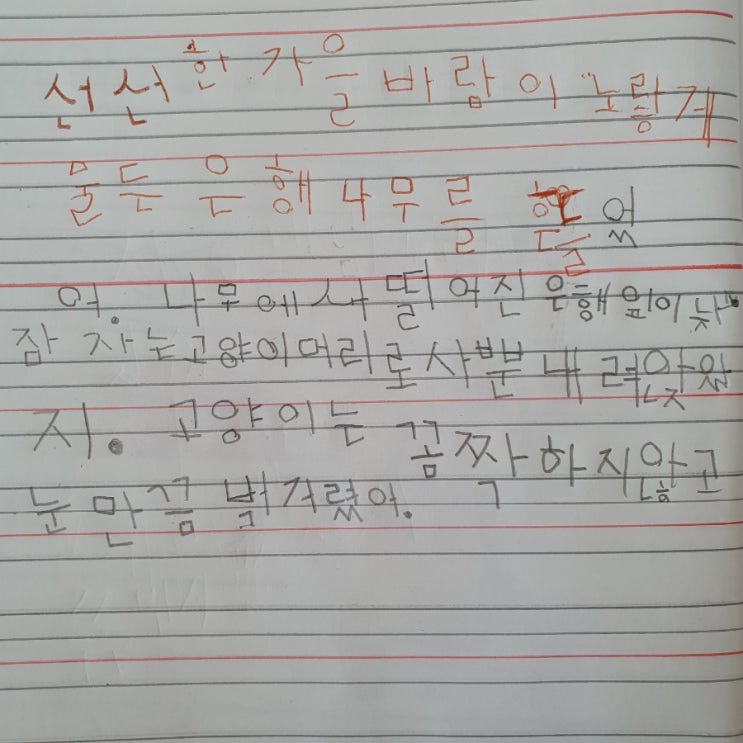 선선한 가을 바람이 노랗게
물든 은행 나무를 흔들었
어. 나무에서 떨어진 은행잎이 낮
잠 자는 고양이 머리로 사뿐 내려앉았
지. 고양이는 꼼짝하지 않고
눈만 끔벅거렸어.